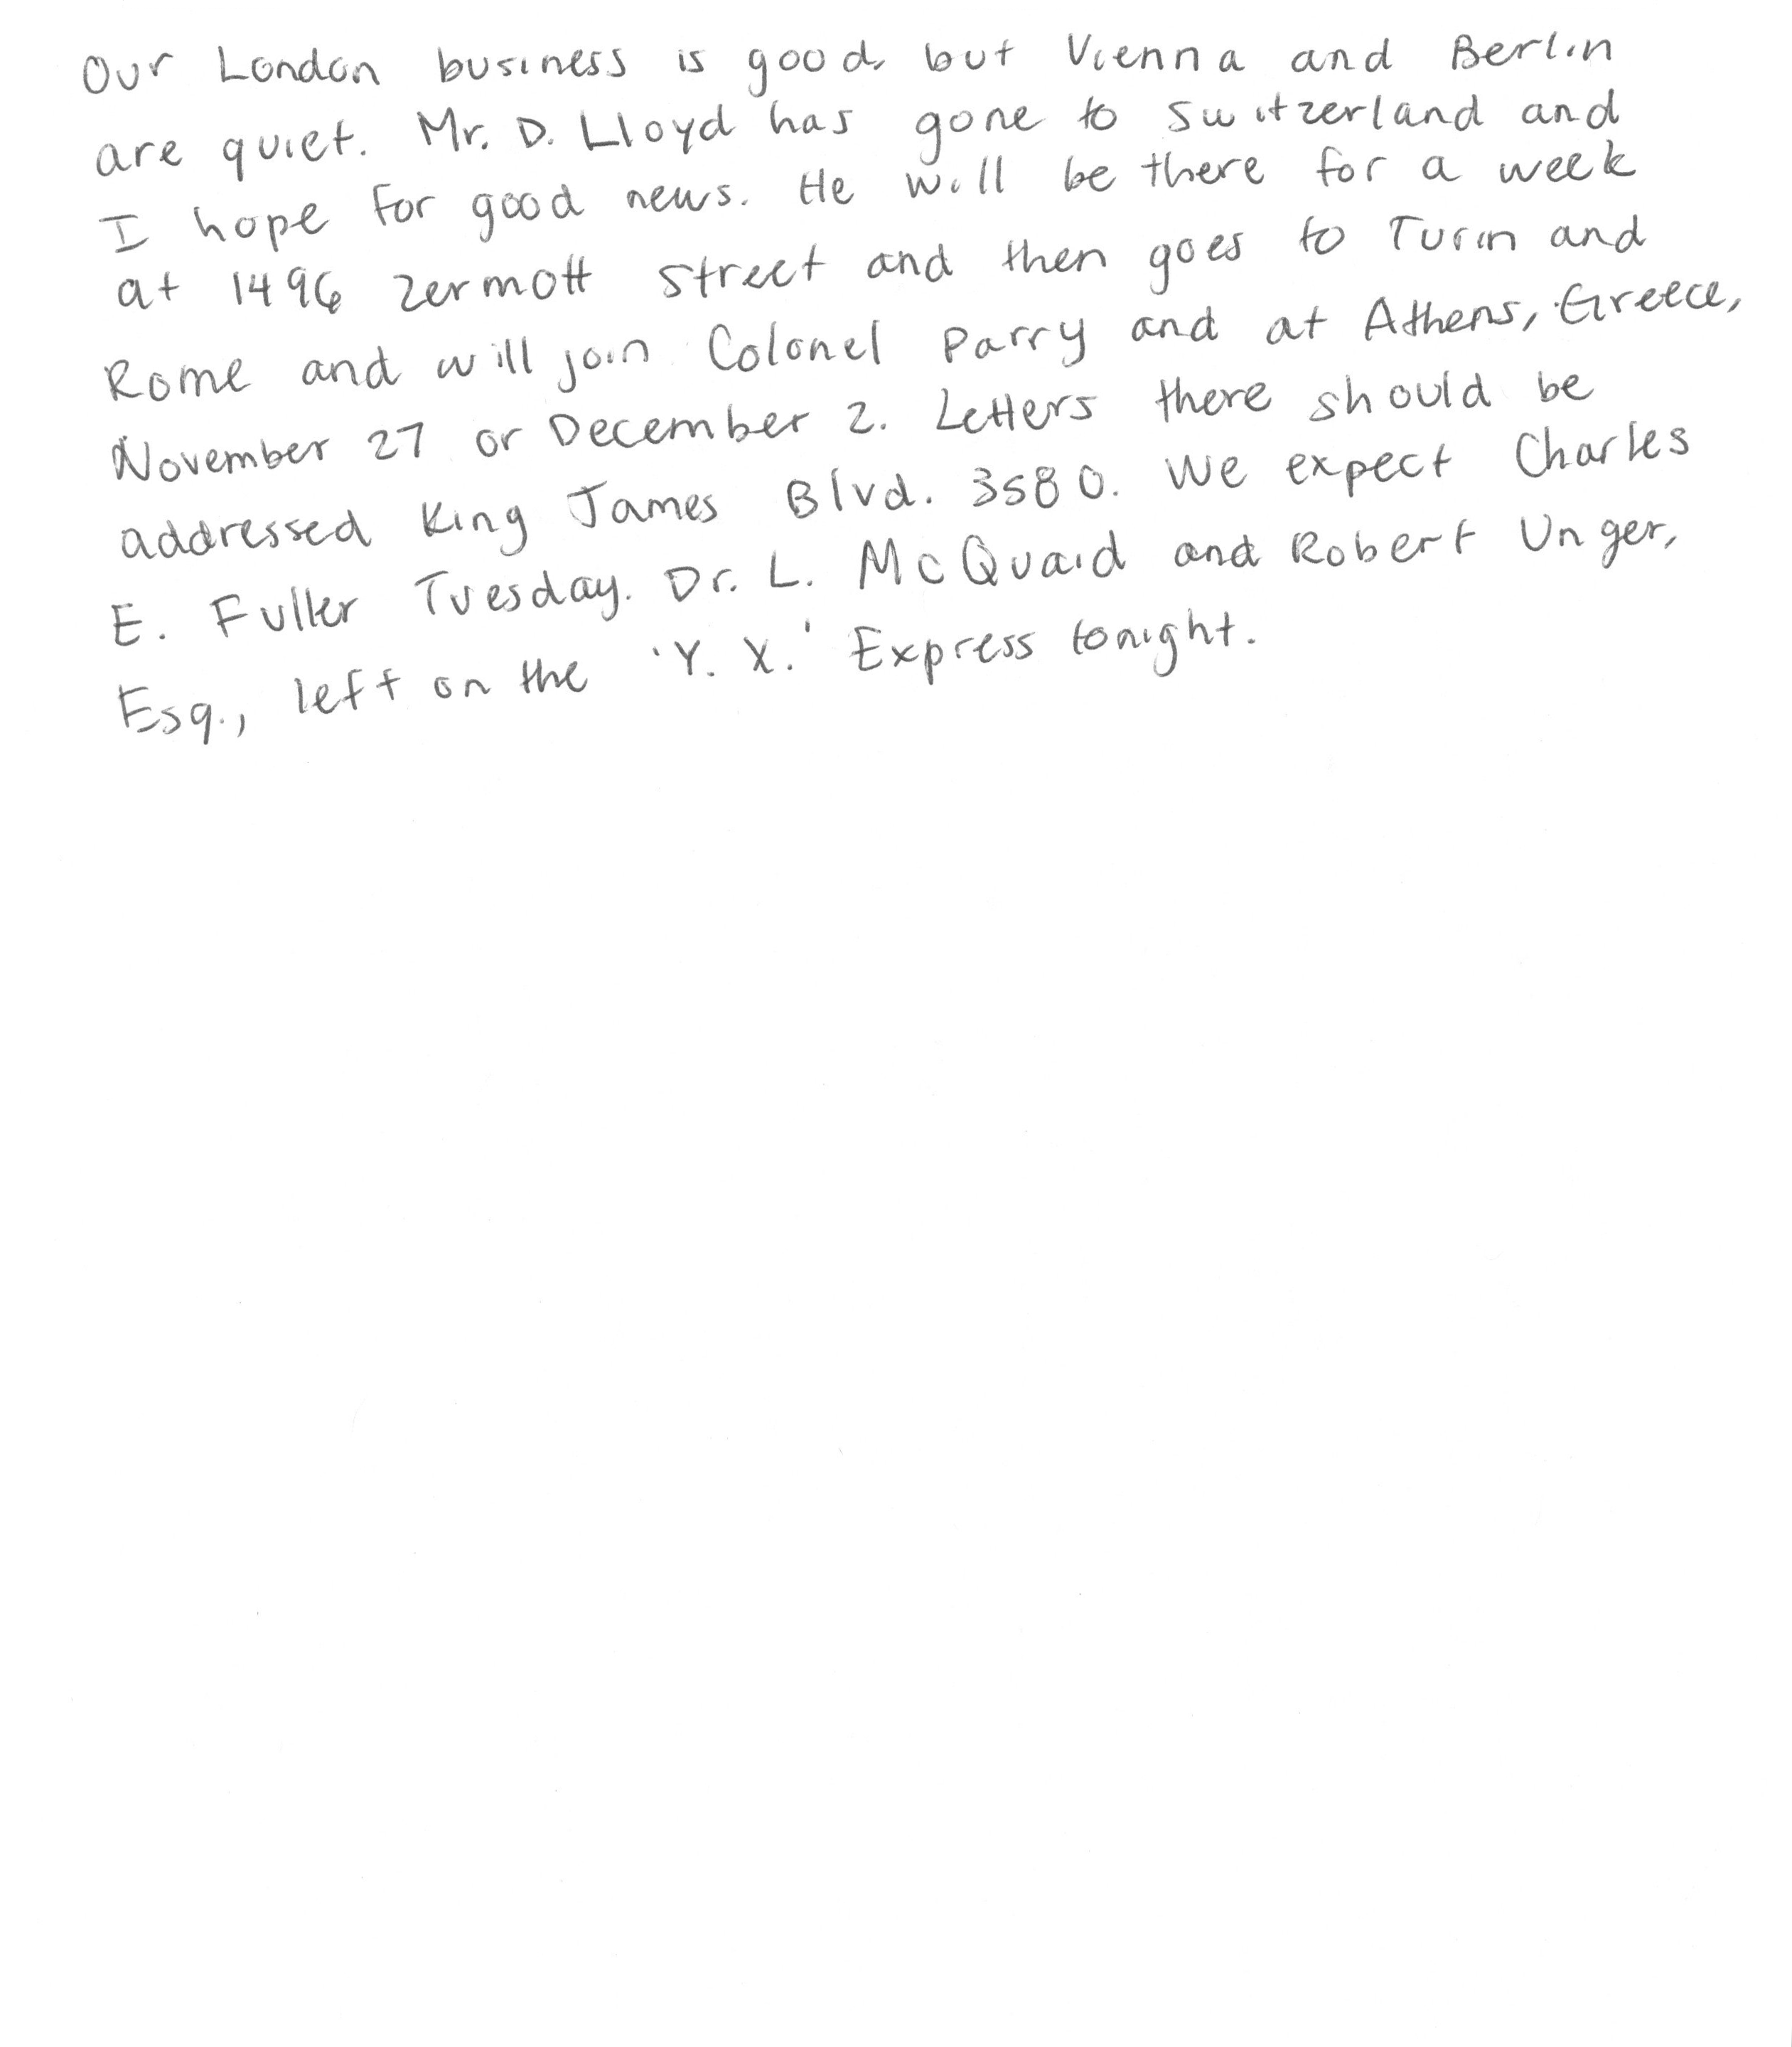 Our London business is good, but Vienna and Berlin
are quiet. Mr. D. Lloyd has gone to Switzerland and
I hope for good news. He will be there for a week
at 1496 Zermott Street and then goes to Turin and
Rome and will join Colonel Parry and at Athens, Greece,
November 27 or December 2. Letters there should be
addressed King James Blvd. 3580. We expect Charles
E. Fuller Tuesday. Dr. L. McQuaid and Robert Unger,
Esq., left on the 'Y. X.' Express tonight.